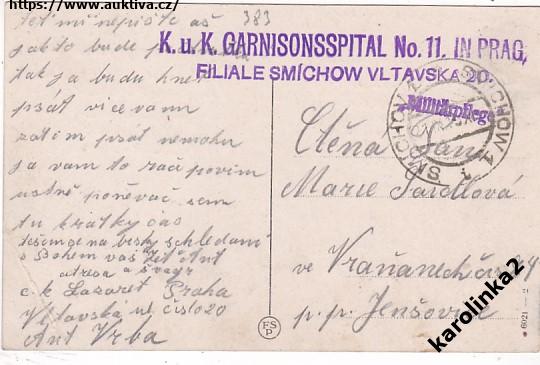 https://www.auktiva.cz/
383
teť mi nepište až
jak to bude
tak ja budu hnet
psát více vám
zatím psát nemohu
ja vam to rači povim
ustně poněvač sem
tu krátky čas
těšime na brsky schledaní
s Bohem vaš Zeť Ant
adresa a švagr
c.k Lazaret Praha
Vltavská ul. číslo 20
Ant Vrba
K. u. K. GARNISONSSPITAL No. 11. IN PRAG,
FILIALE SMÍCHOW VLTAVSKA 20.
„Militärpflege“
SMÍCHOV 1
SMICHOW 1
Ctěna Paní
Marie Saidlová
ve Vraňanech čis 24
p. p. Jenšovice
FS
P
6021
karolinka2